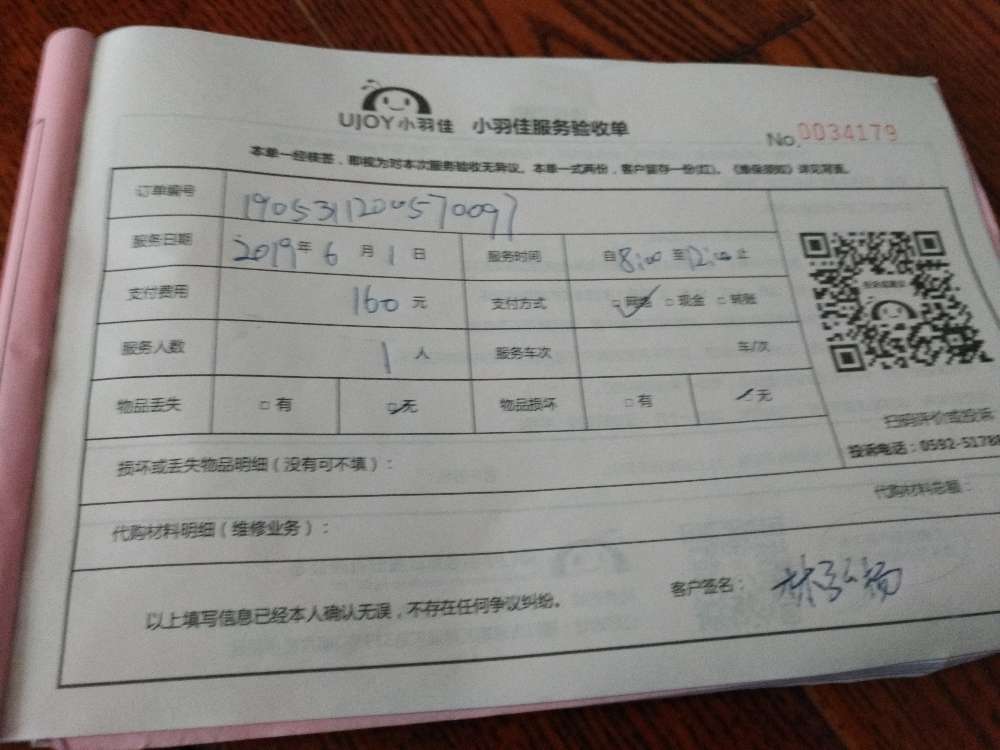 UJOY小羽佳 小羽佳服务验收单
No.0034179
本单一经核签，即视为对本次服务验收无异议。本单一式两份，客户留存一份(红)。《维保须知》详见背面。
订单编号 1905311200570097
服务日期 2019年6月1日 服务时间 自8:00至12:00止
支付费用 160元 支付方式 □网络 □现金 □转账
服务人数 1人 服务车次 车/次
物品丢失 □有 □无 物品损坏 □有 无
扫码评价或投诉
投诉电话：0592-5178
损坏或丢失物品明细（没有可不填）：
代购材料明细（维修业务）： 代购材料总额：
以上填写信息已经本人确认无误，不存在任何争议纠纷。 客户签名：林弘扬